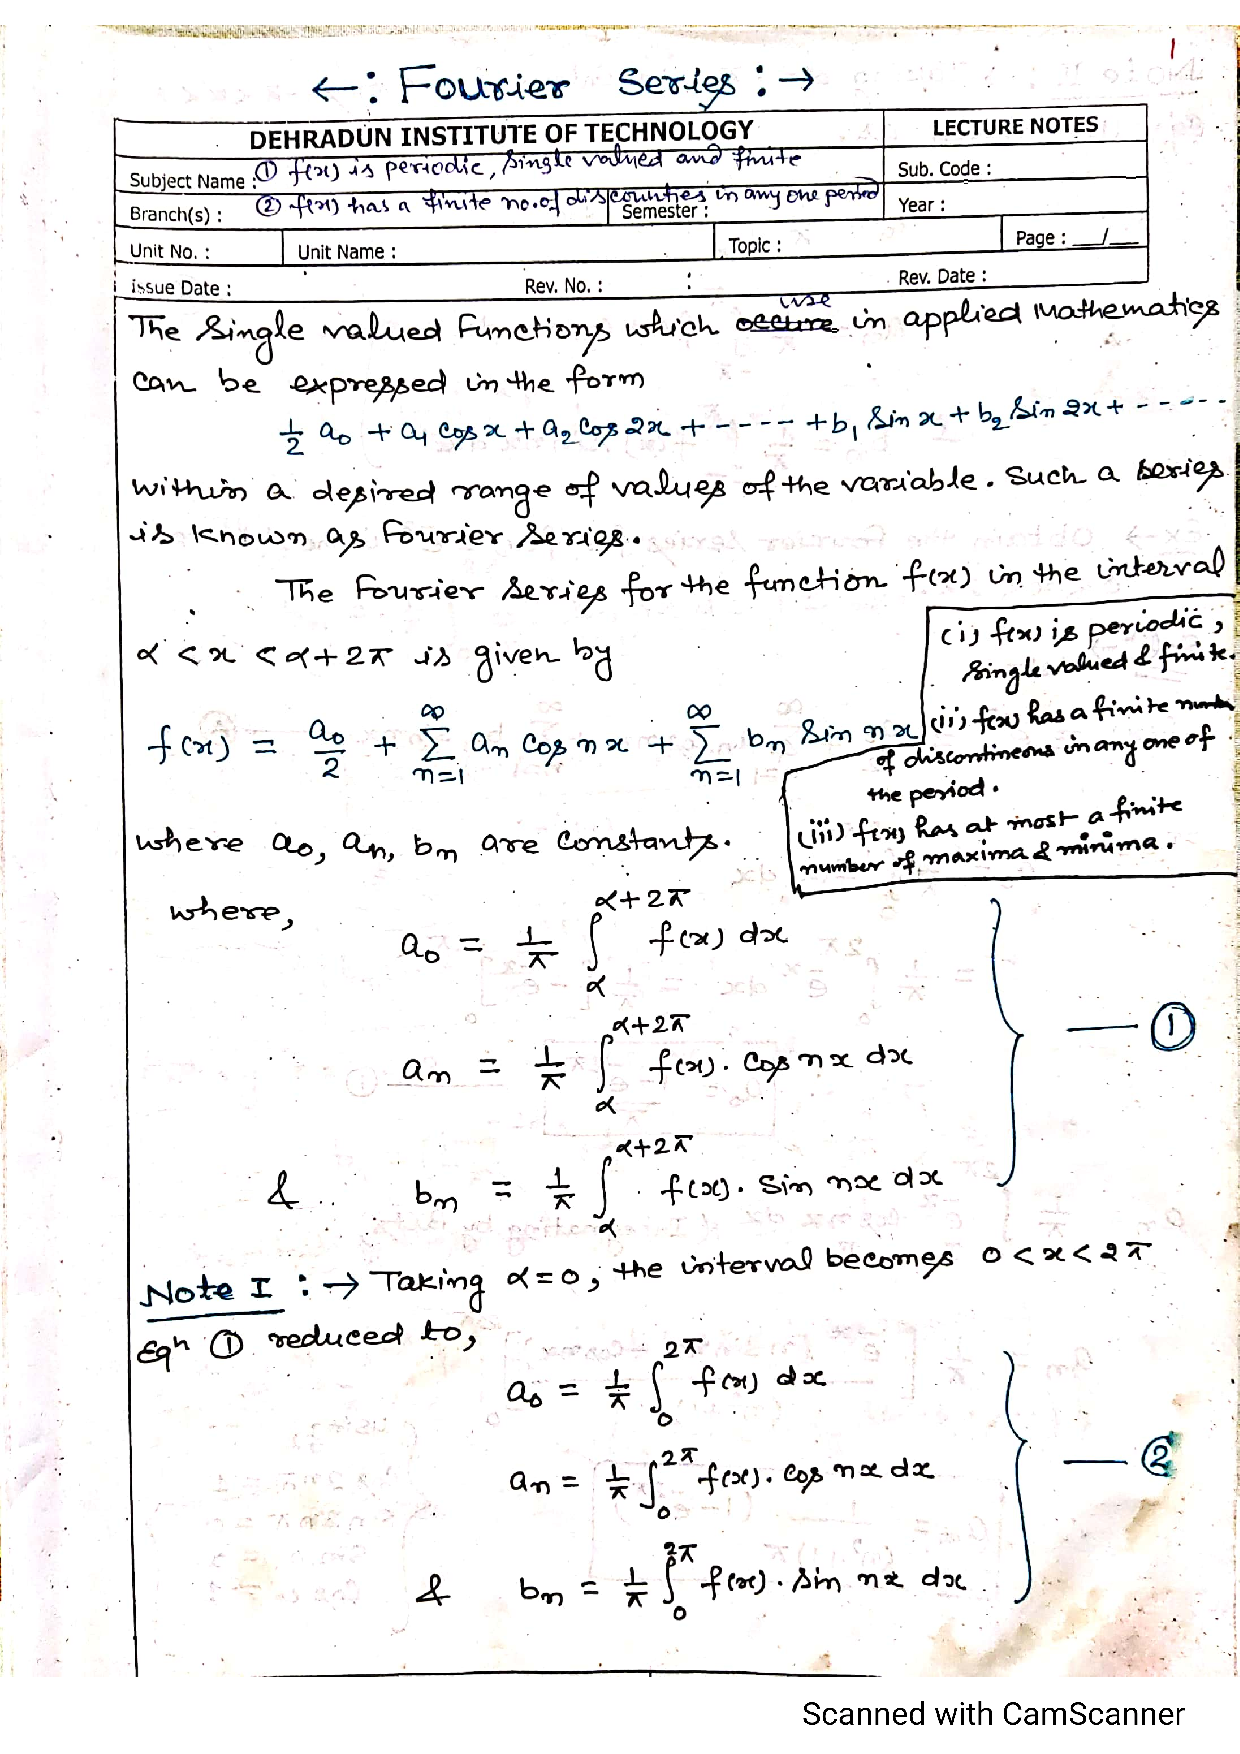 1
←: Fourier Series :→
DEHRADUN INSTITUTE OF TECHNOLOGY
LECTURE NOTES
Subject Name : ① f(x) is periodic, Single valued and finite
Sub. Code :
Branch(s) : ② f(x) has a finite no. of discounties in any one period
Semester :
Year :
Unit No. : Unit Name : Topic : Page : 1
issue Date : Rev. No. : : Rev. Date :
use
The Single valued Functions which occure in applied Mathematics
can be expressed in the form
1/2 a₀ + a₁ cos x + a₂ cos 2x + ---- + b₁ Sin x + b₂ Sin 2x + -----
within a desired range of values of the variable. Such a series
is known as Fourier Series.
The Fourier Series for the function f(x) in the interval
α < x < α+2π is given by
(i) f(x) is periodic,
Single valued & finite.
f(x) = a₀/2 + ∞∑n=1 an cos nx + ∞∑n=1 bn Sin nx
(ii) f(x) has a finite number
of discontineons in any one of
the period.
(iii) f(x) has at most a finite
number of maxima & minima.
where a₀, an, bn are constants.
where,
a₀ = 1/π ∫α^α+2π f(x) dx
an = 1/π ∫α^α+2π f(x). cos nx dx
— ①
& bn = 1/π ∫α^α+2π f(x). Sin nx dx
Note I :→ Taking α=0, the interval becomes 0 < x < 2π
Eqⁿ ① reduced to,
a₀ = 1/π ∫0^2π f(x) dx
an = 1/π ∫0^2π f(x). cos nx dx
— ②
& bn = 1/π ∫0^2π f(x). Sin nx dx
Scanned with CamScanner